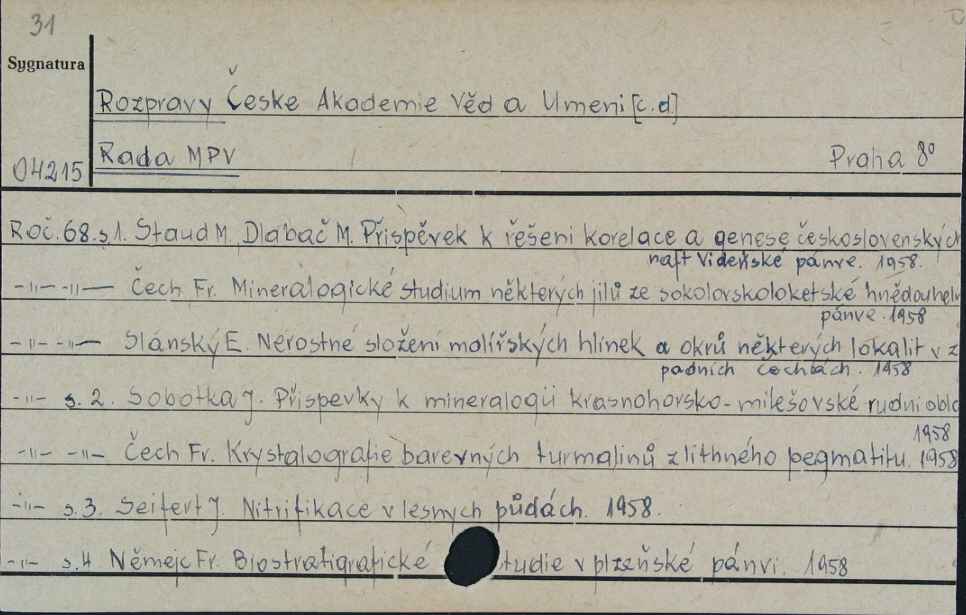 31
Sygnatura
Rozpravy České Akademie Věd a Umeni [c.d]
04215 Rada MPV Praha 8°
Roč. 68. s 1. Staud M, Dlabač M. Přispěvek k řešeni korelace a genese československých
naft Videňské pánve. 1958.
-"- -"- Čech Fr. Mineralogické studium některých jilů ze sokolovskoloketské hnědouheln
pánve. 1958
-"- -"- Slánský E. Nerostné složeni malířských hlinek a okrů některých lokalit v z
padnich Čechtách. 1958
-"- s. 2. Sobotka J. Přispevky k mineralogii krasnohorsko-milešovské rudni oblo
1958
-"- -"- Čech Fr. Krystalografie barevných turmalinů z lithného pegmatitu. 1958
-"- s. 3. Seifert J. Nitrifikace v lesnych půdách. 1958.
-"- s. 4 Němejc Fr. Biostratigrafické tudie v plzeňské pánvi. 1958